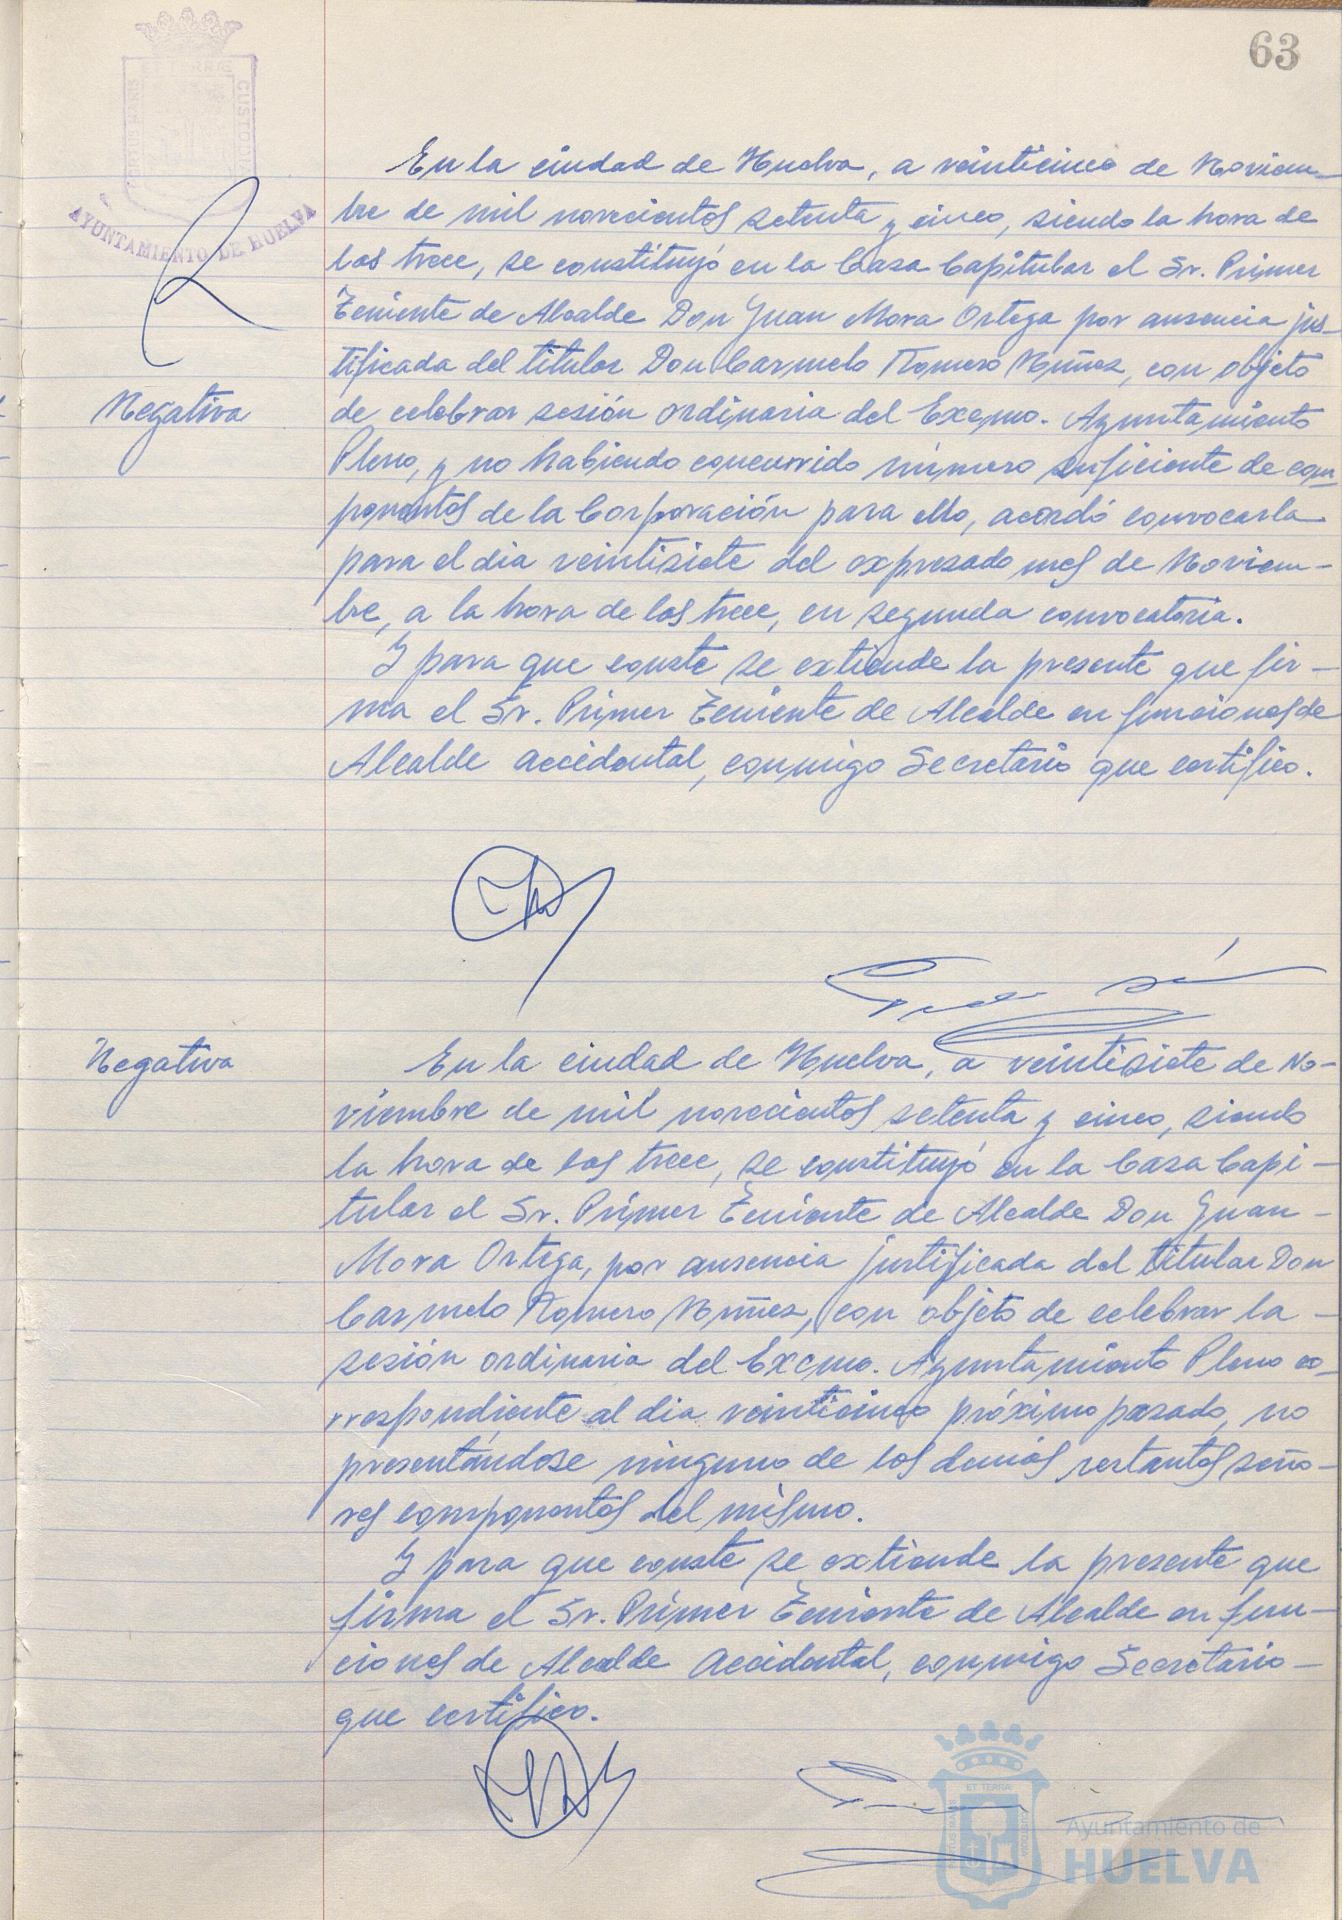 63
PORTUS MARIS
ET TERRAE
CUSTODIA
AYUNTAMIENTO DE HUELVA
En la ciudad de Huelva, a veinticinco de Noviem-
bre de mil novecientos setenta y cinco, siendo la hora de
las trece, se constituyó en la Casa Capitular el Sr. Primer
Teniente de Alcalde Don Juan Mora Ortega por ausencia jus-
tificada del titular Don Carmelo Romero Núñez, con objeto
Negativa
de celebrar sesión ordinaria del Excmo. Ayuntamiento
Pleno, y no habiendo concurrido número suficiente de com
ponentes de la Corporación para ello, acordó convocarla
para el dia veintisiete del expresado mes de Noviem-
bre, a la hora de las trece, en segunda convocatoria.
Y para que conste se extiende la presente que fir-
ma el Sr. Primer Teniente de Alcalde en funciones de
Alcalde accidental, conmigo Secretario que certifico.
Negativa
En la ciudad de Huelva, a veintisiete de No-
viembre de mil novecientos setenta y cinco, siendo
la hora de las trece, se constituyó en la Casa Capi-
tular el Sr. Primer Teniente de Alcalde Don Juan-
Mora Ortega, por ausencia justificada del titular Don
Carmelo Romero Núñez, con objeto de celebrar la-
sesión ordinaria del Excmo. Ayuntamiento Pleno co-
rrespondiente al dia veinticinco próximo pasado, no
presentándose ninguno de los demás restantes seño-
res componentes del mismo.
Y para que conste se extiende la presente que
firma el Sr. Primer Teniente de Alcalde en fun-
ciones de Alcalde Accidental, conmigo Secretario-
que certifico.
ET TERRA
Ayuntamiento de
HUELVA